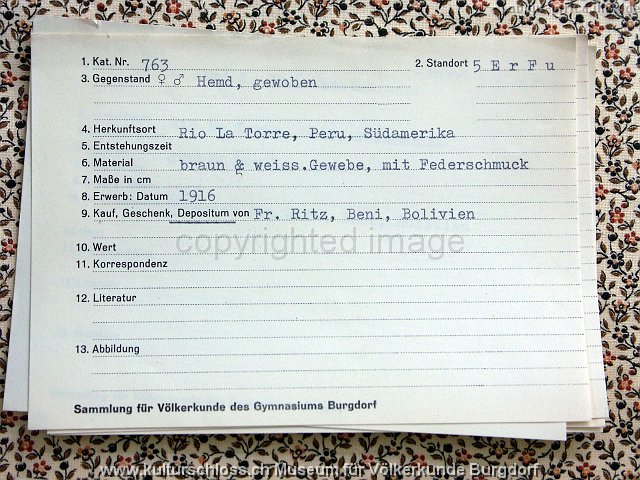 1. Kat. Nr. 763 2. Standort 5 E r F u
3. Gegenstand ♀ ♂ Hemd, gewoben
4. Herkunftsort Rio La Torre, Peru, Südamerika
5. Entstehungszeit
6. Material braun & weiss.Gewebe, mit Federschmuck
7. Maße in cm
8. Erwerb: Datum 1916
9. Kauf, Geschenk, Depositum von Fr. Ritz, Beni, Bolivien
copyrighted image
10. Wert
11. Korrespondenz
12. Literatur
13. Abbildung
Sammlung für Völkerkunde des Gymnasiums Burgdorf
www.kulturschloss.ch Museum für Völkerkunde Burgdorf